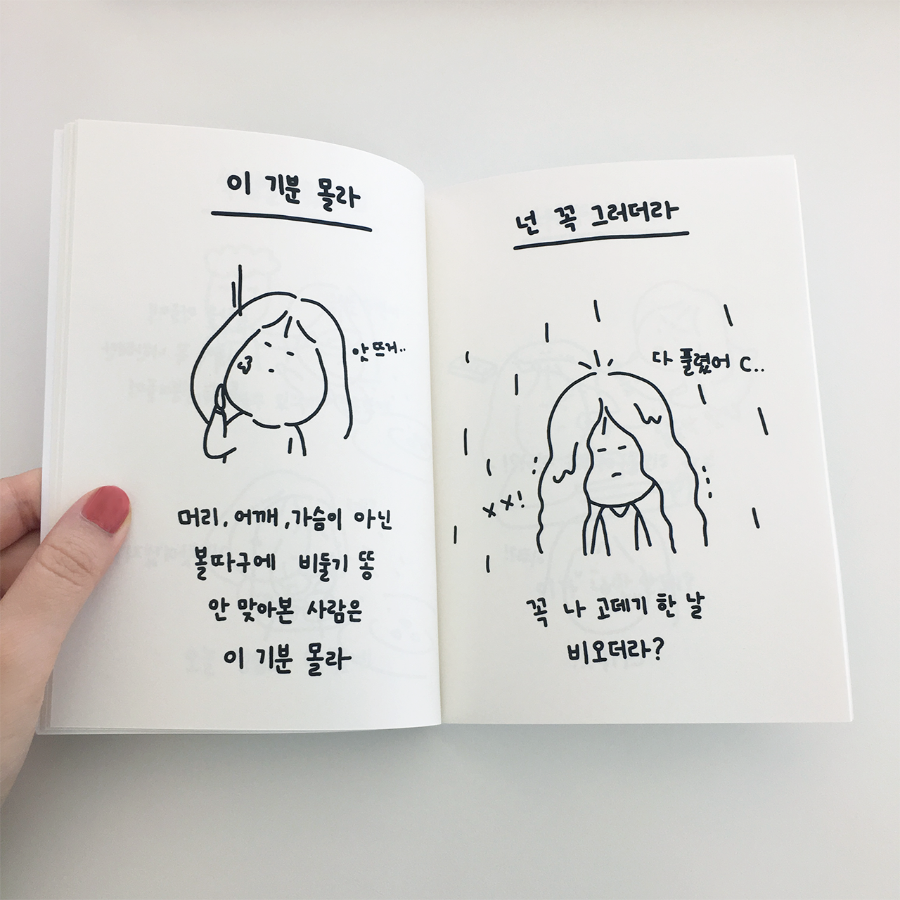 이 기분 몰라
앗 뜨거..
머리, 어깨, 가슴이 아닌
볼따구에 비둘기 똥
안 맞아본 사람은
이 기분 몰라
넌 꼭 그러더라
다 풀렸어 C..
××!
꼭 나 고데기 한 날
비오더라?